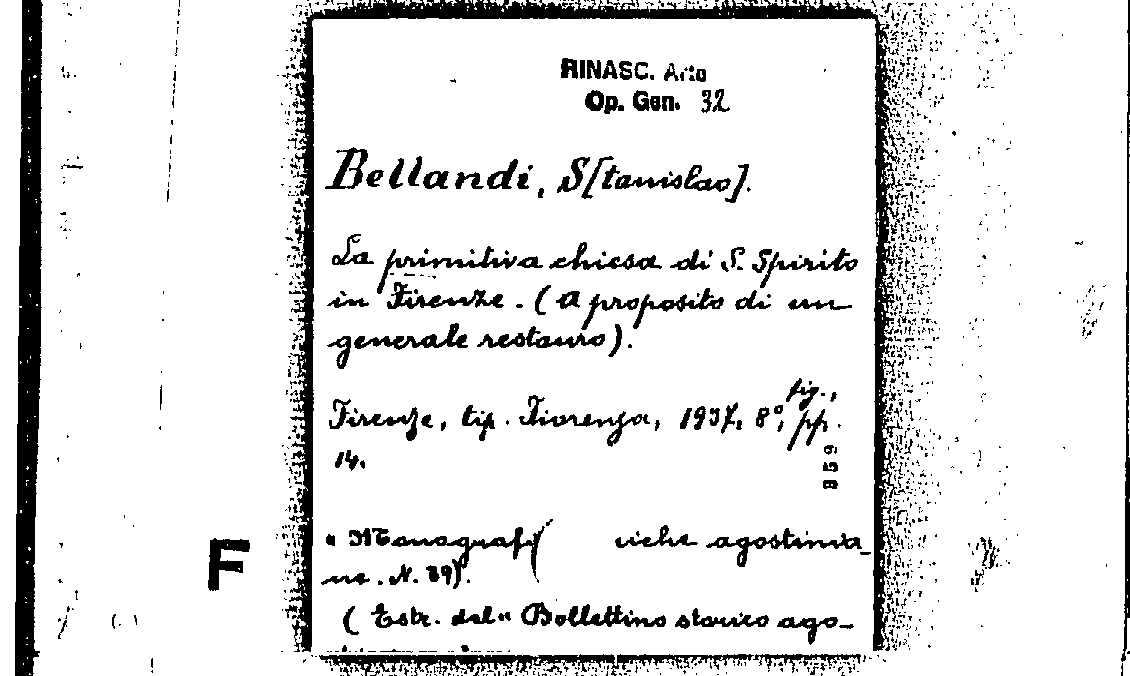 RINASC. Arte
Op. Gen. 32
Bellandi, S[tanislao].
La primitiva chiesa di S. Spirito
in Firenze. (A proposito di un
generale restauro).
Firenze, tip. Fiorenza, 1937, 8°, fig., pp.
14.
859
« Monografi riche agostinia_
ne. N. 39).
F
( Estr. dal « Bollettino storico ago_